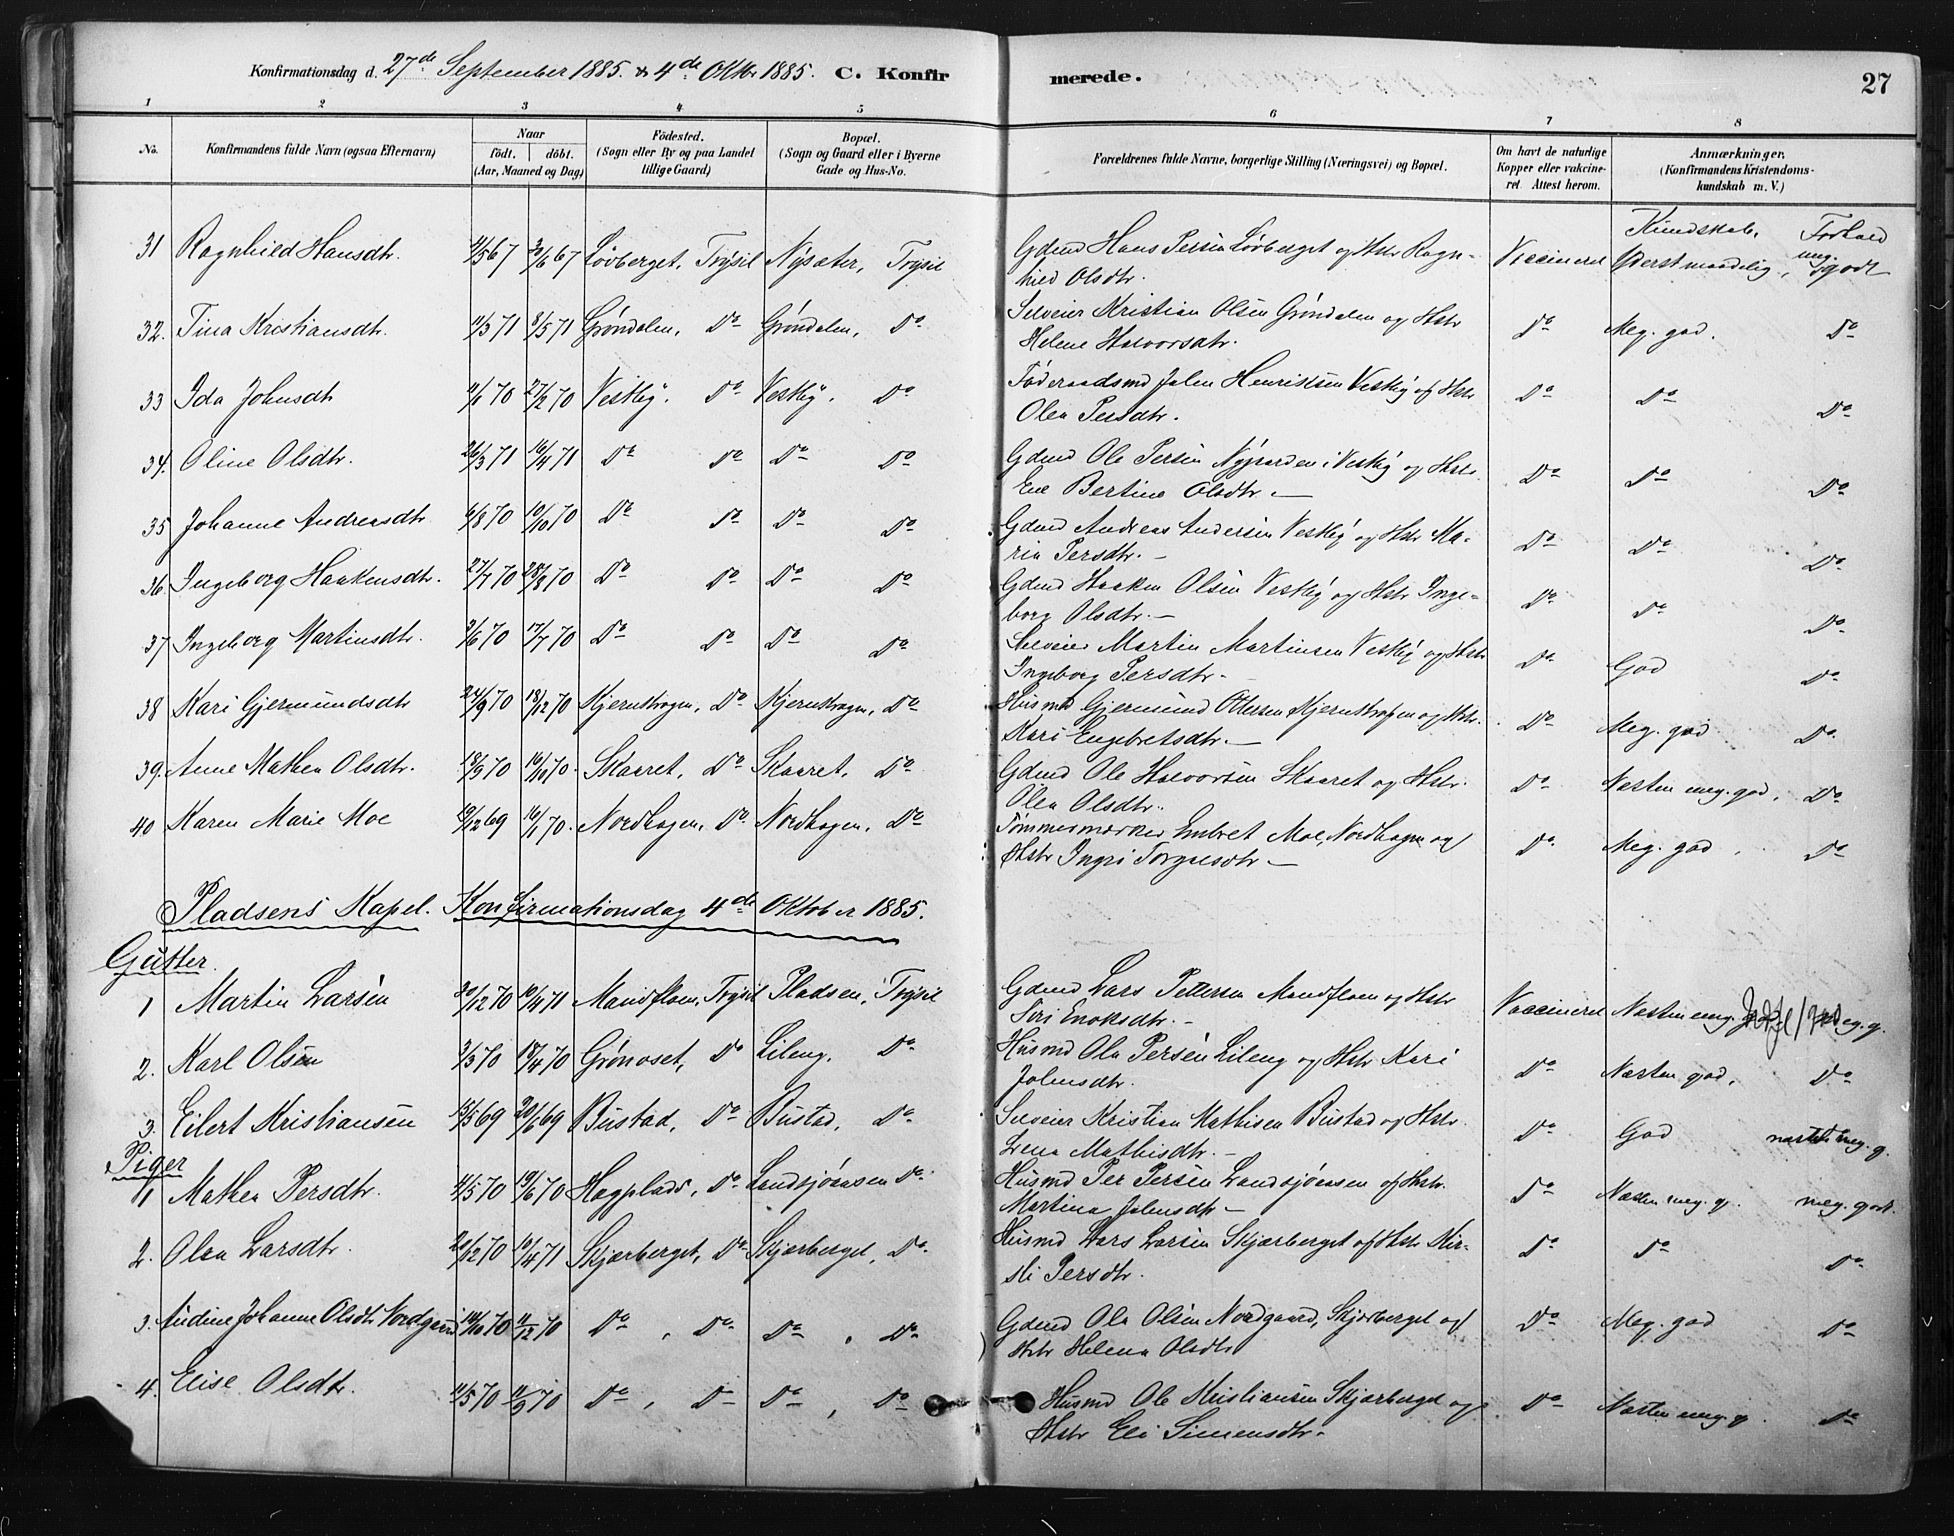 Konfirmationsdag d. 27de September 1885. & 4de Oktbr 1885. C. Konfirmerede. 27
1 2 3 4 5 6 7 8
No. Konfirmandens fulde Navn (ogsaa Efternavn) Naar födt. döbt. (Aar, Maaned og Dag) Födested. (Sogn eller By og paa Landet tillige Gaard) Bopæl. (Sogn og Gaard eller i Byerne Gade og Hus-No. Forældrenes fulde Navne, borgerlige Stilling (Næringsvei) og Bopæl. Om havt de naturlige Kopper eller vakcineret. Attest herom. Anmærkninger. (Konfirmandens Kristendomskundskab m. V.)
Kundskab. Forhold
31 Ragnhild Hansdtr. 11/5 67 30/6 67 Lövberget, Trysil Nysæter, Trysil Gdmd Hans Persen Lövberget og Hstr Ragnhild Olsdtr. Vaccineret Yderst maadelig, meg. godt
32. Tina Kristiansdtr. 11/3 71 8/5 71 Gröndalen, Do Gröndalen, Do Selveier Kristian Olsen Gröndalen og Hstr Helene Halvorsdtr. Do Meg. god. Do
33 Ida Johnsdtr 11/1 70 27/2 70 Vestby. Do Vestby. Do Föderaadsmd John Henriksen Vestby og Hstr Olea Persdtr. Do Do Do
34. Oline Olsdtr. 26/3 71 16/4 71 Do Do Do Do Gdmd Ole Persen Nygarden i Vestby og Hstr Ene Bertine Olsdtr. Do Do Do
35 Johanne Andreasdtr 6/8 70 10/10 70 Do Do Do Do Gdmd Andreas Andersen Vestby og Hstr Maria Persdtr. Do Do Do
36 Ingeborg Haakensdtr. 27/7 70 28/8 70 Do Do Do Do Gdmd Haaken Olsen Vestby og Hstr Ingeborg Olsdtr. Do Do Do
37 Ingeborg Martinsdtr. 9/6 70 17/7 70 Do Do Do Do Selveier Martin Martinsen Vestby og Hstr Ingeborg Persdtr. Do God Do
38 Kari Gjermundsdtr 24/9 70 18/12 70 Kjernskogen, Do Kjernskogen, Do Husmd Gjermund Ottersen Kjernskogen og Hstr. Kari Engebretsdtr. Do Meg. god Do
39. Anne Mathea Olsdtr. 18/9 70 16/10 70 Skaaret, Do Skaaret, Do Gdmd Ole Halvorsen Skaaret og Hstr. Olea Olsdtr. Do Næsten meg. god, Do
40 Karen Marie Moe 10/12 69 16/1 70 Nordhagen, Do Nordhagen, Do Tömmermærker Embret Moe, Nordhagen og Hstr Ingri Torgersdtr Do Meg. god, Do
Pladsens Kapel. Konfirmationsdag 4de Oktober 1885.
Gutter
1 Martin Larsen 30/12 70 10/4 71 Mandfloen, Trysil Pladsen, Trysil Gdmd Lars Pettersen Mandfloen og Hstr Siri Enoksdtr. Vaccineret Næsten meg.
2. Karl Olsen 3/3 70 18/4 70 Grönoset, Do Lileng. Do Husmd Ola Persen Lileng og Hstr Kari Johnsdtr. Do Næsten god. Do
3. Eilert Kristiansen 15/5 69 20/6 69 Bustad, Do Bustad, Do Selveier Kristian Mathisen Bustad og Hstr. Lena Mathisdtr. Do God næsten meg. g.
Piger
1 Mathea Persdtr. 4/5 70 19/6 70 Hagplads, Do Landsjöaasen Do Husmd Per Persen Landsjöaasen og Hstr. Martina Johnsdtr Do Næsten meg. g. meg. godt.
2. Olea Larsdtr. 20/12 70 10/4 71 Skjærberget, Do Skjærberget, Do Husmd Lars Larsen Skjærberget og Hstr Kirsti Persdtr. Do Do Do
3. Andine Johanne Olsdtr Nordgaard 10/10 70 11/12 70 Do, Do Do, Do Gdmd Ola Olsen Nordgaard, Skjærberget og Hstr Helena Olsdtr Do Meg. god Do
4. Elise Olsdtr. 11/5 70 11/9 70 Do, Do Do, Do Husmd Ole Kristiansen Skjærberget og Hstr Eli Simensdtr. Do Næsten meg. g. Do